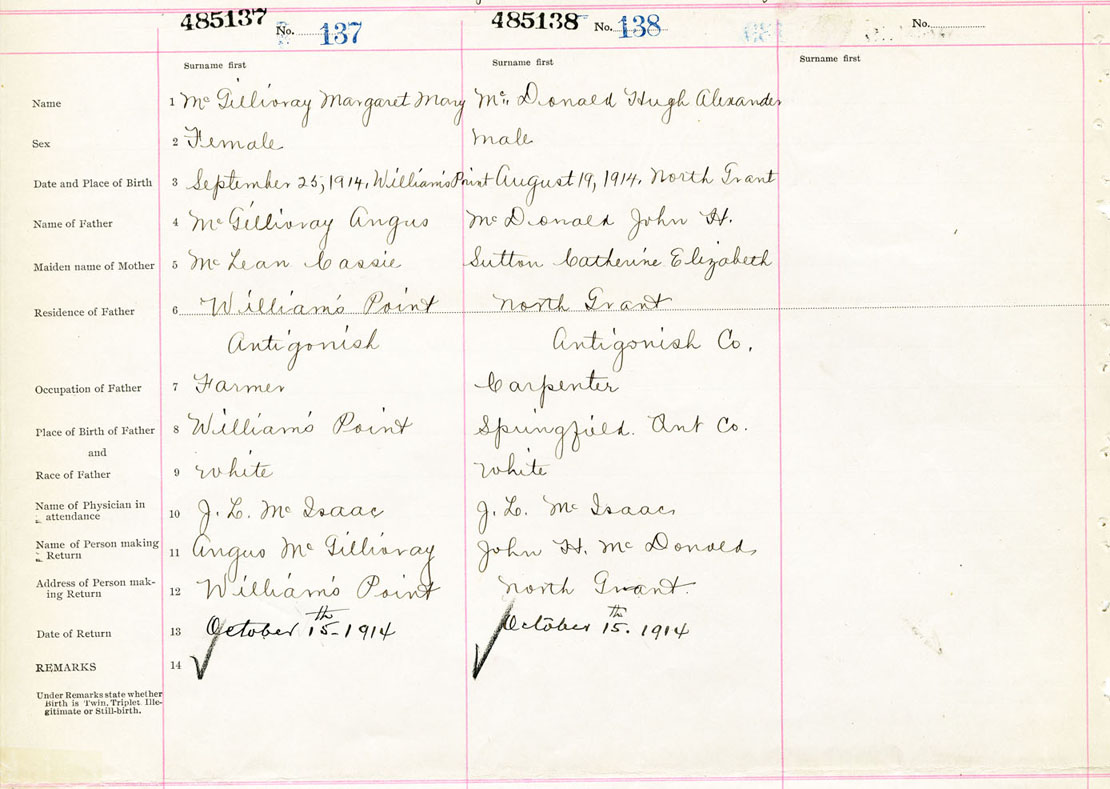 485137 No. 137 485138 No. 138 No.
Surname first Surname first Surname first
Name 1 Mc Gillivray Margaret Mary Mc Donald Hugh Alexander
Sex 2 Female Male
Date and Place of Birth 3 September 25, 1914, William's Point August 19, 1914. North Grant
Name of Father 4 Mc Gillivray Angus Mc Donald John H.
Maiden name of Mother 5 Mc Lean Cassie Sutton Catherine Elizabeth
Residence of Father 6 William's Point North Grant
Antigonish Antigonish Co.
Occupation of Father 7 Farmer Carpenter
Place of Birth of Father 8 William's Point Springfield. Ant Co.
and
Race of Father 9 White White
Name of Physician in
attendance 10 J. L. Mc Isaac J. L. Mc Isaac
Name of Person making
Return 11 Angus Mc Gillivray John H. Mc Donald
Address of Person mak-
ing Return 12 William's Point North Grant.
Date of Return 13 October 15th - 1914 October 15th. 1914
REMARKS 14
Under Remarks state whether
Birth is Twin, Triplet, Ille-
gitimate or Still-birth.